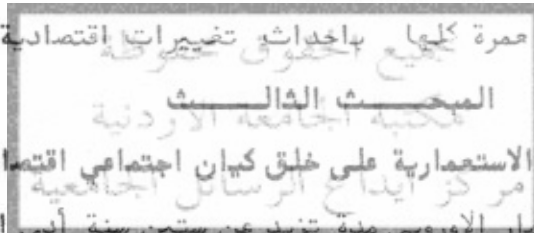 عمرة كلها باحداث تغييرات اقتصادية
جميع الحقوق محفوظة
المبحث الثالث
مكتبة الجامعة الاردنية
الاستعمارية على خلق كيان اجتماعي اقتصا
مركز ايداع الرسائل الجامعية
الاوروبي مدة تزيد عن ستين سنة أدى